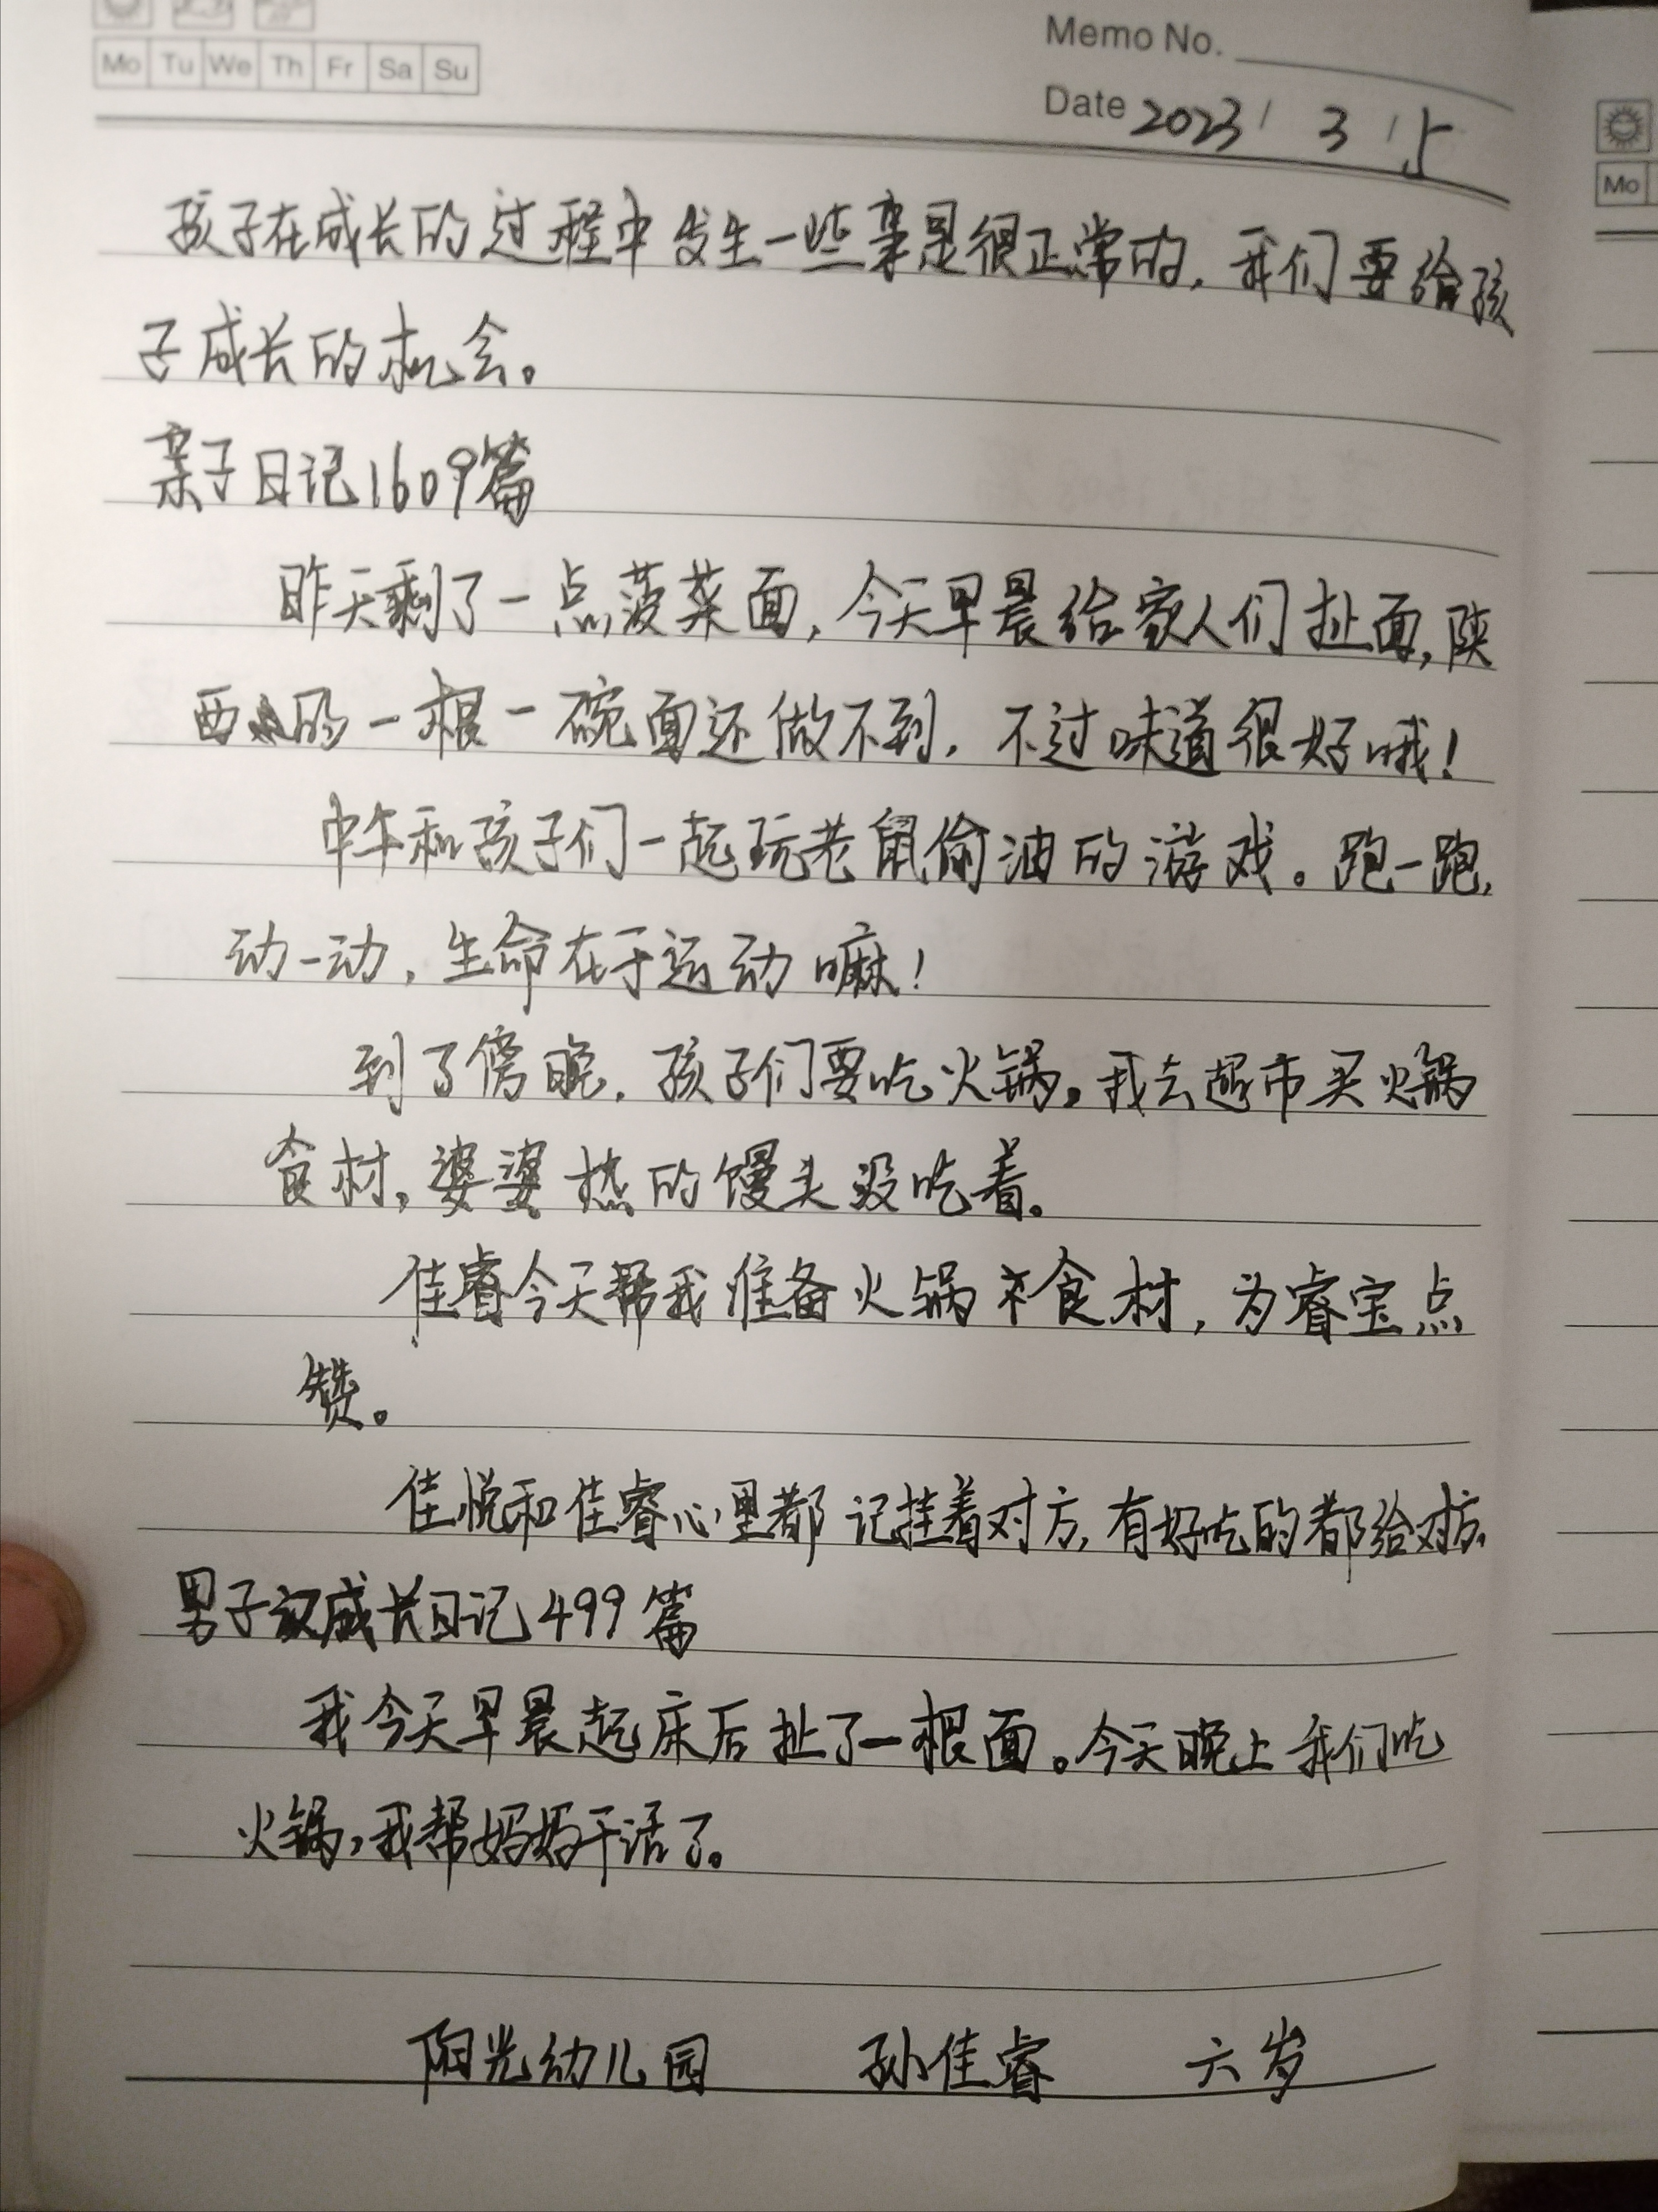 Mo Tu We Th Fr Sa Su
Memo No.
Date 2023 / 3 / 5
孩子在成长的过程中发生一些事是很正常的，我们要给孩
子成长的机会。
亲子日记1609篇
昨天剩了一点菠菜面，今天早晨给家人们扯面，陕
西的一根一碗面还做不到，不过味道很好哦！
中午和孩子们一起玩老鼠偷油的游戏。跑一跑，
动一动，生命在于运动嘛！
到了傍晚，孩子们要吃火锅。我去超市买火锅
食材，婆婆热的馒头没吃着。
佳睿今天帮我准备火锅食材，为睿宝点
赞。
佳悦和佳睿心里都记挂着对方，有好吃的都给对方。
男子汉成长日记499篇
我今天早晨起床后扯了一根面。今天晚上我们吃
火锅，我帮妈妈干活了。
阳光幼儿园 孙佳睿 六岁
Mo